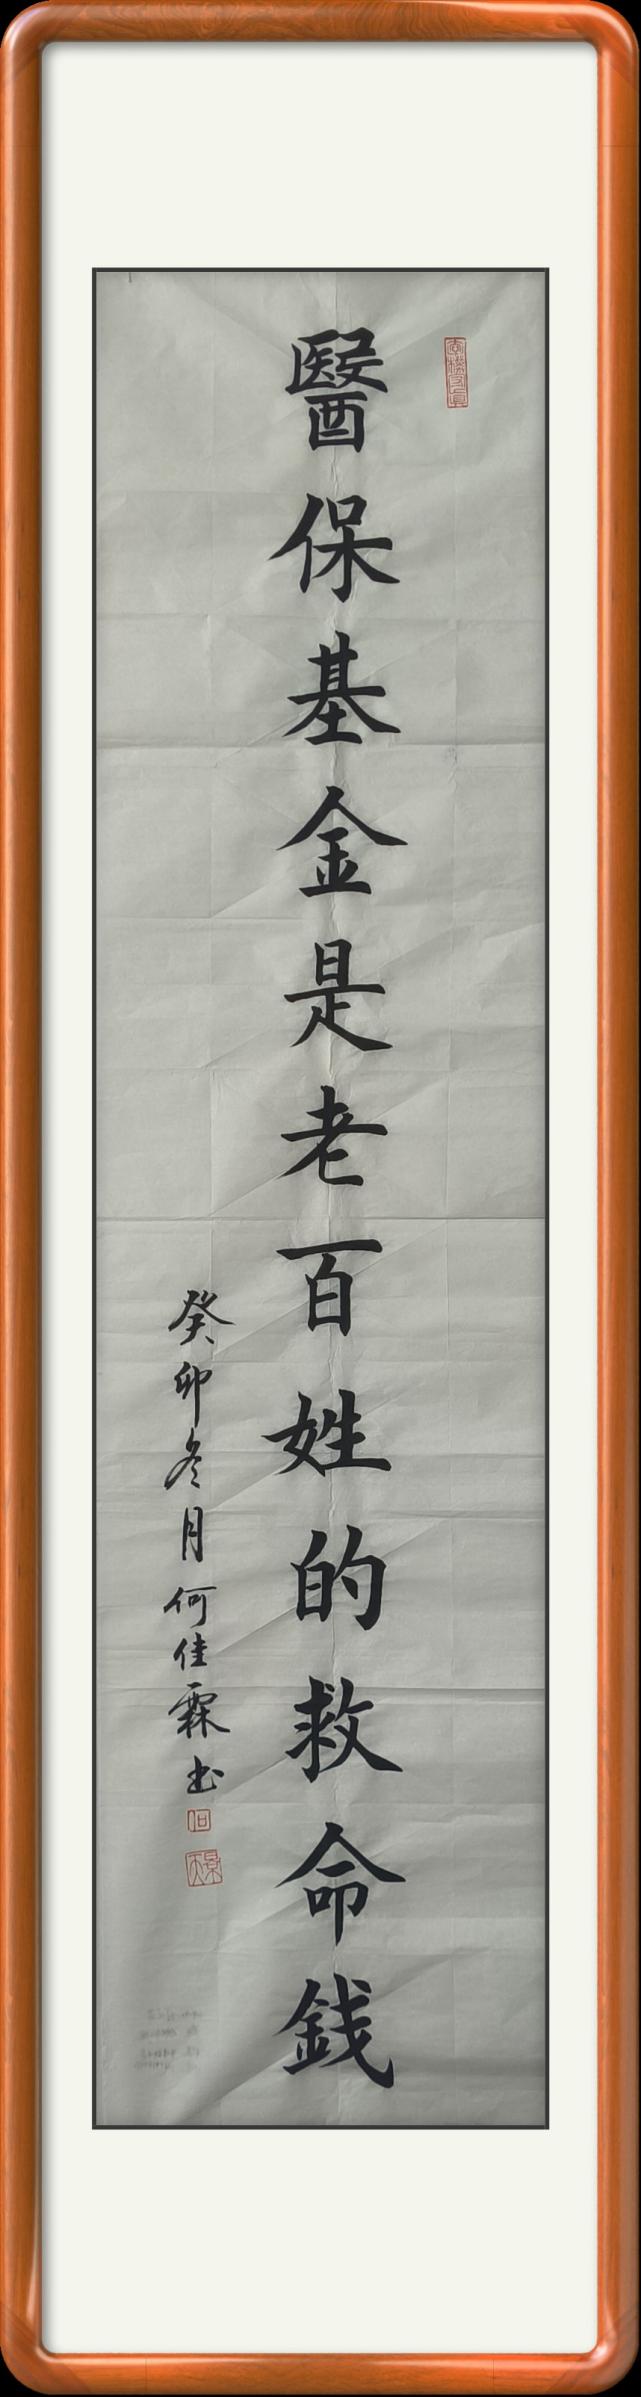 醫保基金是老百姓的救命錢
癸卯冬月何佳霖书